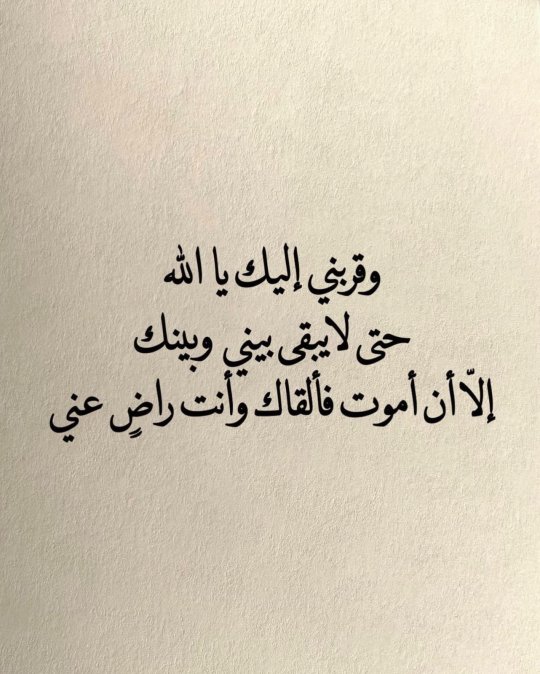 وقربني إليك يا الله
حتى لايبقى بيني وبينك
إلاّ أن أموت فألقاك وأنت راضٍ عني